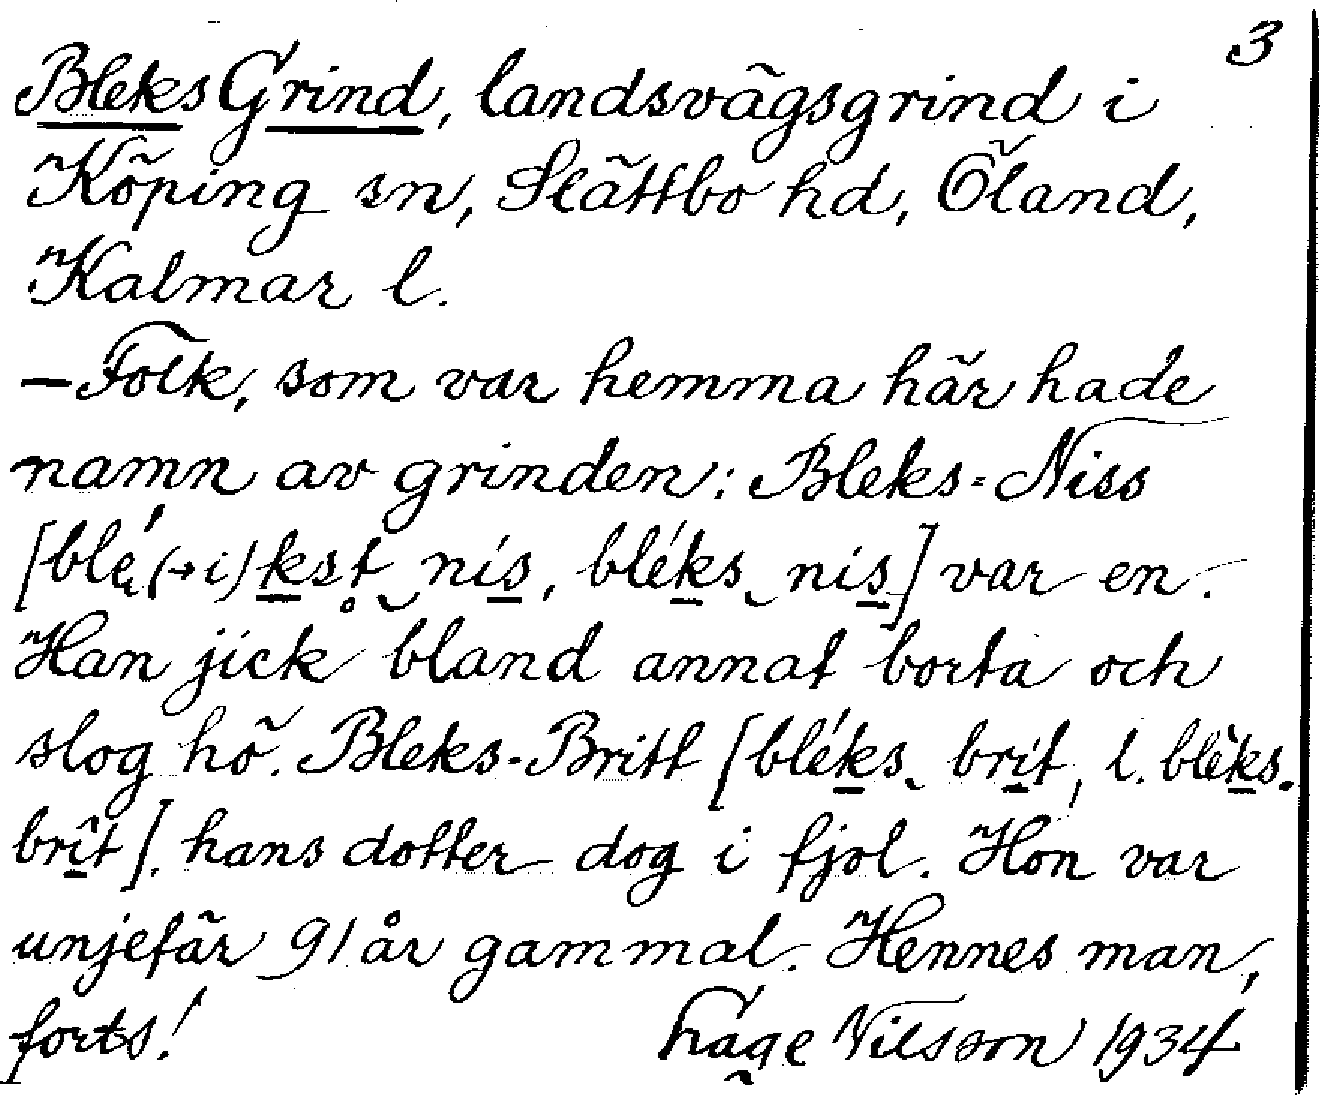 3
Bleks Grind, landsvägsgrind i
Köping sn, Slättbo hd, Öland,
Kalmar l.
— Folk, som var hemma här hade
namn av grinden: Bleks-Niss
[blé̜(→i)ks nís, bléks nis] var en.
Han jick bland annat borta och
slog hö. Bleks-Britt [bléks brít, l. blèks.
brît]. hans dotter dog i fjol. Hon var
unjefär 91 år gammal. Hennes man,
forts! Nilsson 1934